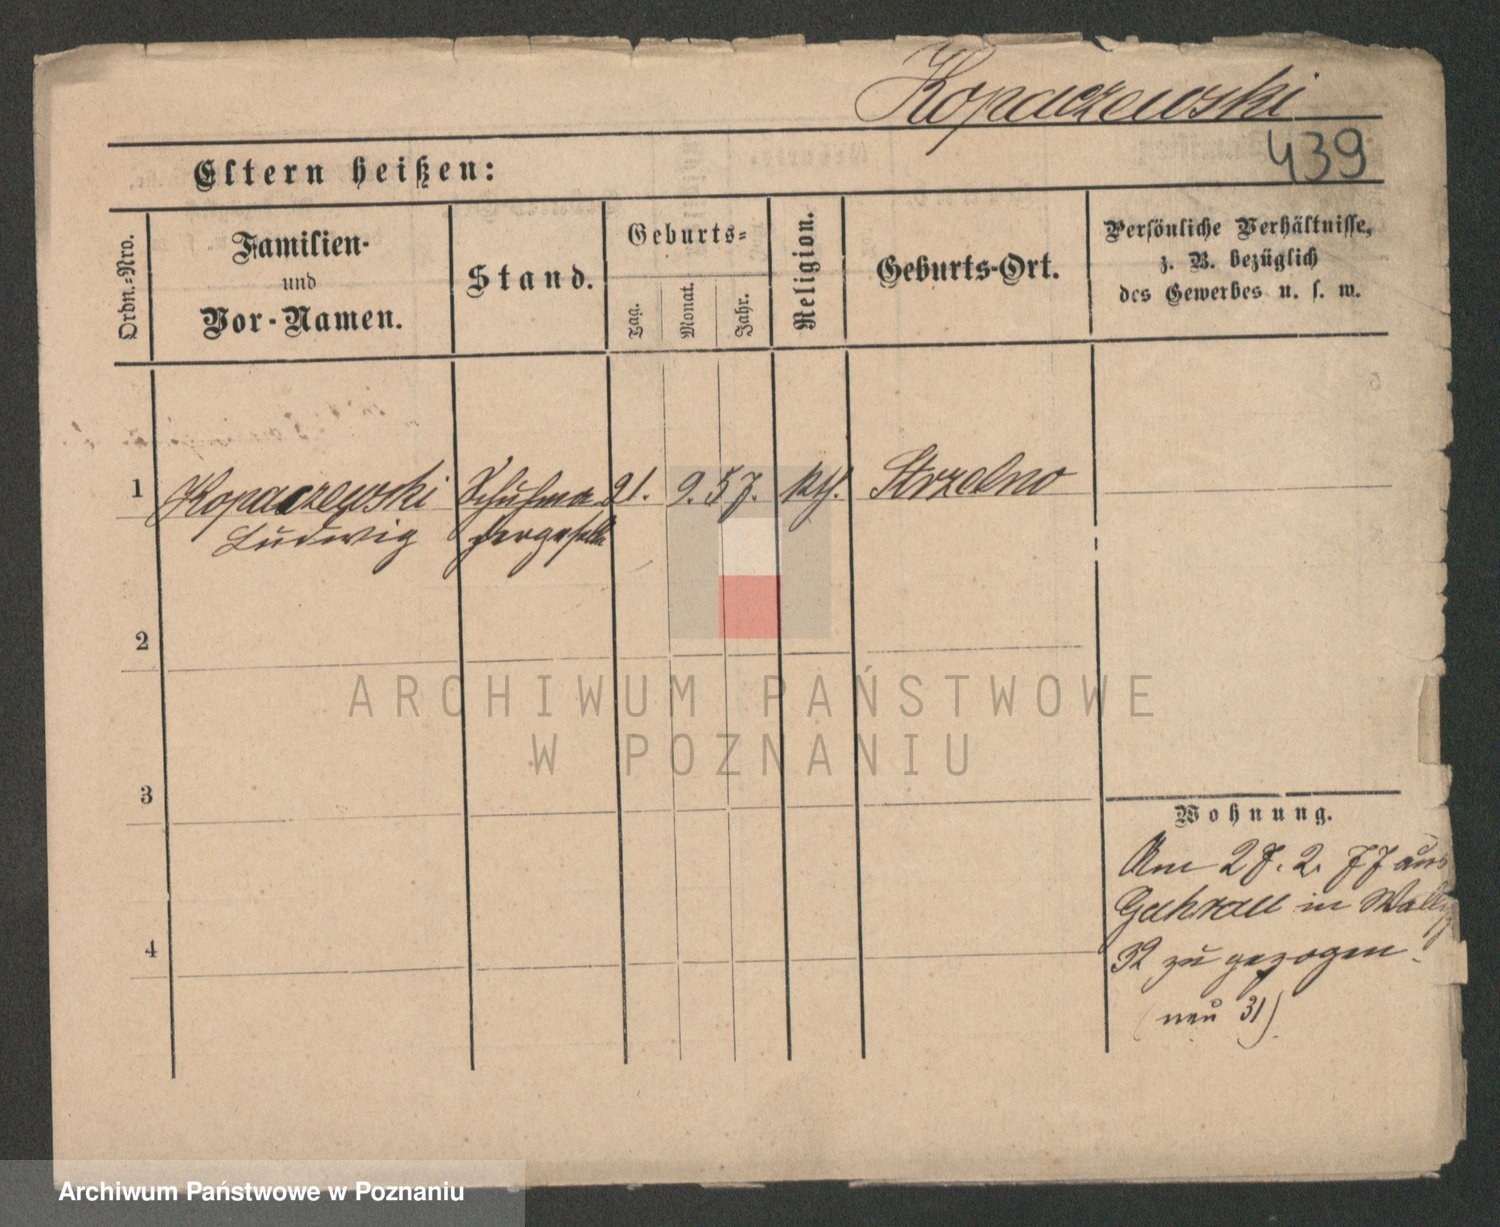 Kopaczewski
439
Eltern heißen:
Ordn.-Nro.
Familien-
und
Vor-Namen.
Stand.
Geburts-
Tag.
Monat.
Jahr.
Religion.
Geburts-Ort.
Persönliche Verhältnisse,
z. B. bezüglich
des Gewerbes u. s. w.
1 Kopaczewski Schuhma 21. 9. 57. kth. Strzelno
Ludwig chergeselle
2
3
4
Wohnung.
Am 27. 2. 77 aus
in
32 zu gezogen.
(neu 31)
ARCHIWUM PAŃSTWOWE
W POZNANIU
Archiwum Państwowe w Poznaniu